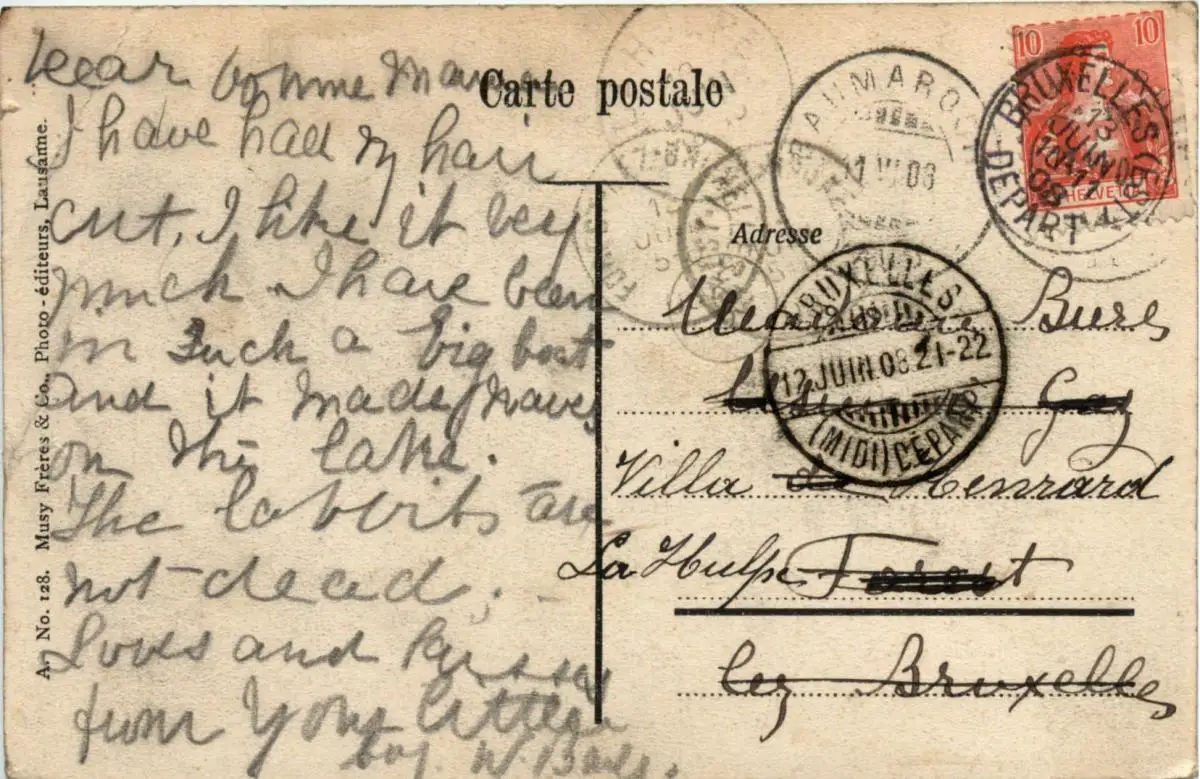 Dear bonne Mama
I have had my hair
cut, I like it very
much I have been
in such a big boat
and it made waves
on the lake.
The rabbits are
not dead,
Loves and kysses
from your little
boy. W.
Carte postale
Adresse
Bure
Gay
Villa de Henrard
La Hulpe Forest
lez Bruxelles
A. No. 128. Musy Frères & Co., Photo-éditeurs, Lausanne.
10 10
HELVETIA
BRUXELLES
13 JUIN 08
DEPART
BRUXELLES
12 JUIN.08 21-22
(MIDI) DEPART
VI.08
LA HULPE